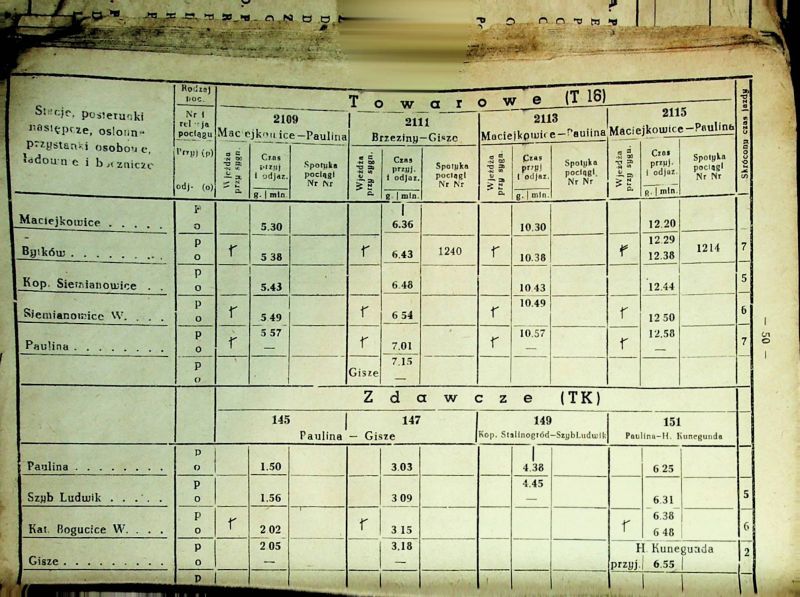 Stacje, posterunki
następcze, osłonne
przystanki osobowe,
ładownie i bocznice
Rodzaj
poc.
Nr i
relacja
pociągu
Przyj (p)
odj. (o)
Towarowe (T 16)
Skrócony czas jazdy
2109
Maciejkowice-Paulina
2111
Brzeziny-Gisze
2113
Maciejkowice-Paulina
2115
Maciejkowice-Paulina
Wjeżdża przy sygn.
Czas przyj i odjaz.
g. | min.
Spotyka pociągi Nr Nr
Wjeżdża przy sygn.
Czas przyj. i odjaz.
g. | min.
Spotyka pociągi Nr Nr
Wjeżdża przy sygn.
Czas przyj i odjaz.
g. | min.
Spotyka pociągi Nr Nr
Wjeżdża przy sygn.
Czas przyj. i odjaz.
g. | min.
Spotyka pociągi Nr Nr
p
Maciejkowice . . . . . o 5.30 6.36 10.30 12.20
p 12.29
Bytków . . . . . . . . o 5 38 6.43 1240 10.38 12.38 1214 7
p
Kop. Siemianowice . . o 5.43 6.48 10.43 12.44 5
p 10.49
Siemianowice W. . . . o 5 49 6 54 12 50 6
p 5 57 10.57 12.58
Paulina . . . . . . . . o — 7.01 — — 7
p 7.15
o Gisze —
— 50 —
Zdawcze (TK)
145 147 149 151
Paulina — Gisze Kop. Stalinogród-Szyb Ludwik Paulina-H. Kunegunda
p
Paulina . . . . . . . . o 1.50 3.03 4.38 6 25
p 4.45
Szyb Ludwik . . . . . o 1.56 3 09 — 6.31 5
p 6.38
Kat. Bogucice W. . . . o 2 02 3 15 6 48 6
p 2 05 3.18 H. Kunegunda 2
Gisze . . . . . . . . . o — — przyj. 6.55
p